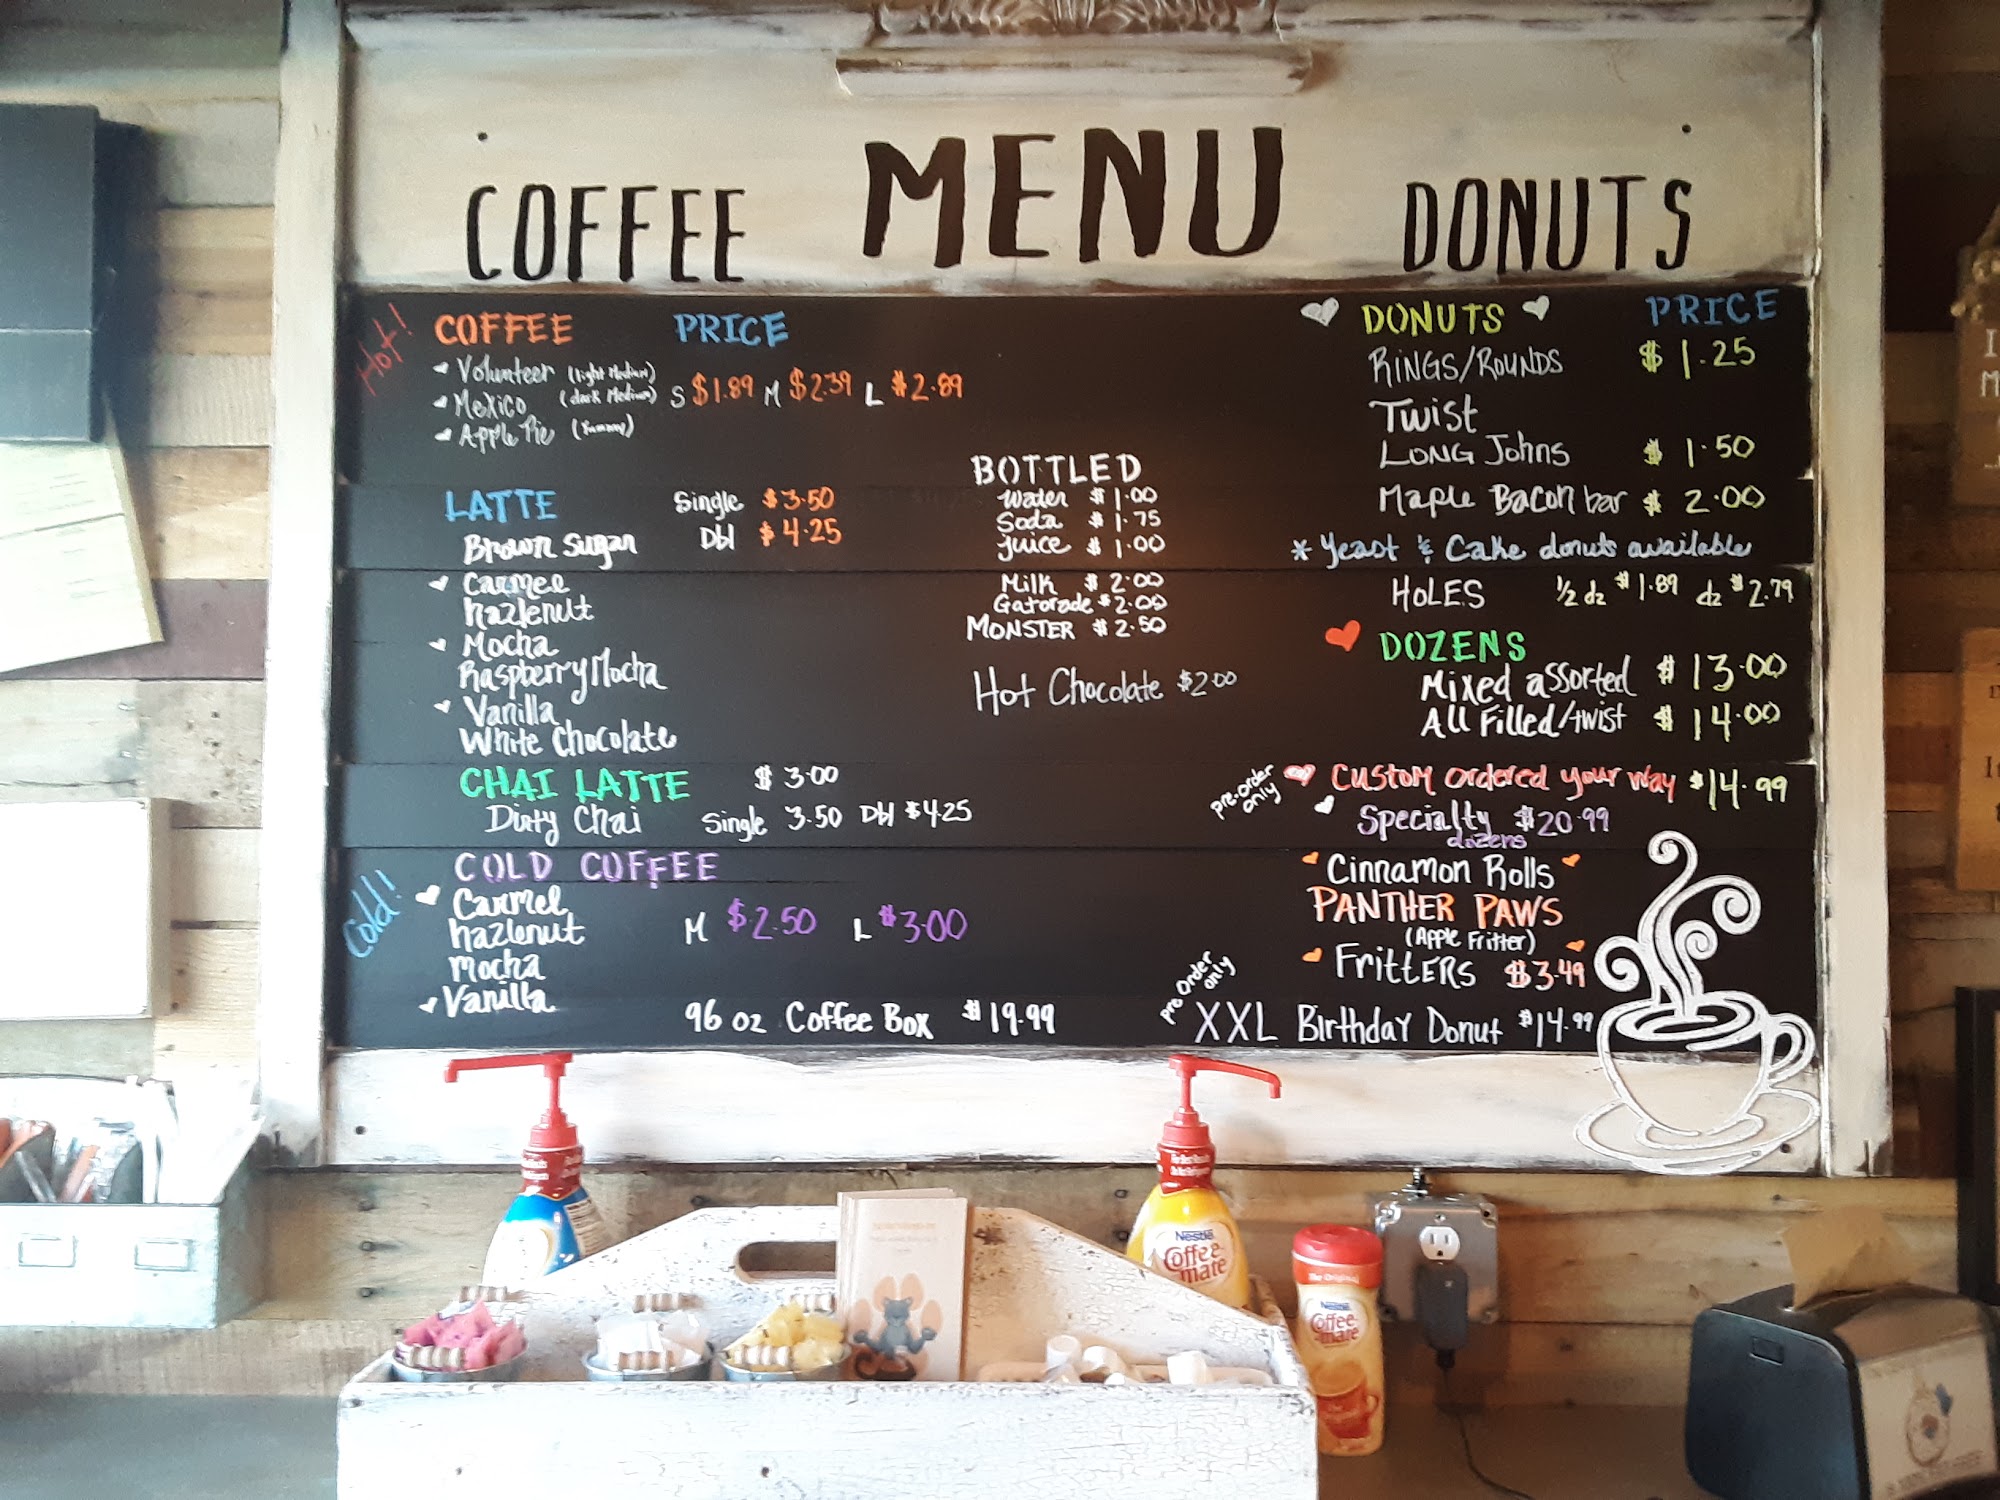 COFFEE MENU DONUTS
Hot!
COFFEE PRICE
Volunteer (light Medium)
Mexico (dark Medium)
Apple Pie (Yummy)
S $1.89 M $2.39 L $2.89
LATTE Single $3.50
Dbl $4.25
Brown Sugar
Carmel
hazlenut
Mocha
Raspberry Mocha
Vanilla
White Chocolate
CHAI LATTE $3.00
Dirty Chai Single 3.50 Dbl $4.25
Cold!
COLD COFFEE
Carmel
hazlenut
Mocha
Vanilla
M $2.50 L $3.00
96 oz Coffee Box $19.99
BOTTLED
Water $1.00
Soda $1.75
juice $1.00
Milk $2.00
Gatorade $2.00
MONSTER $2.50
Hot Chocolate $2.00
DONUTS PRICE
RINGS/ROUNDS $1.25
Twist
LONG Johns $1.50
Maple Bacon bar $2.00
* Yeast & Cake donuts available
HOLES 1/2 dz $1.89 dz $2.79
DOZENS
Mixed assorted $13.00
All Filled/twist $14.00
pre-order only
Custom ordered your way $14.99
Specialty $20.99
dozens
Cinnamon Rolls
PANTHER PAWS
(Apple Fritter)
FrittERS $3.49
pre order only
XXL Birthday Donut $14.99
Nestlé
Coffee mate
The Original
Nestlé
Coffee mate